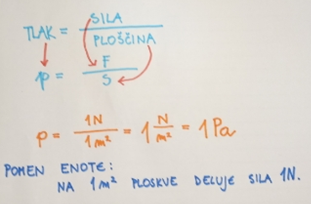 TLAK = SILA / PLOŠČINA
p = F / S
p = 1N / 1m² = 1 N/m² = 1 Pa
POMEN ENOTE:
NA 1m² PLOSKVE DELUJE SILA 1N.